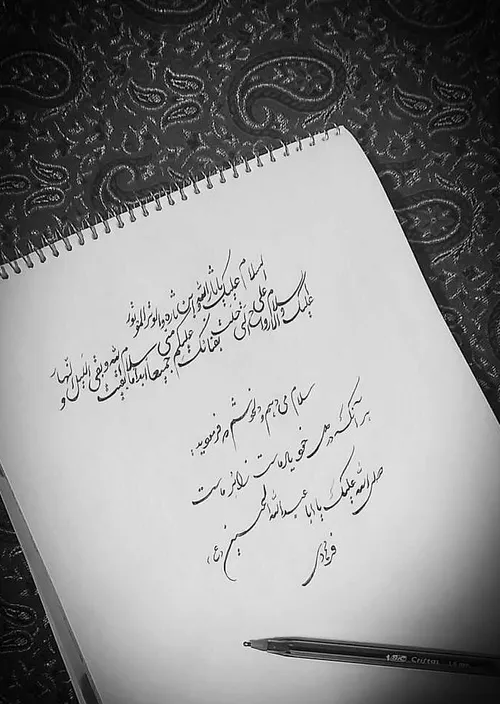 السلام علیک یا ثارالله وابن ثاره والوتر الموتور
السلام علیک و علی الارواح التی حلت بفنائک
علیکم منی جمیعا سلام الله ابدا ما بقیت و بقی اللیل و النهار
سلام می دهم و دلخوشم که فرمودید:
هر آنکه در دل خود یاد ماست زائر ماست
صلی الله علیک یا ابا عبدالله الحسین (ع)
فرهادی
BIC Cristal